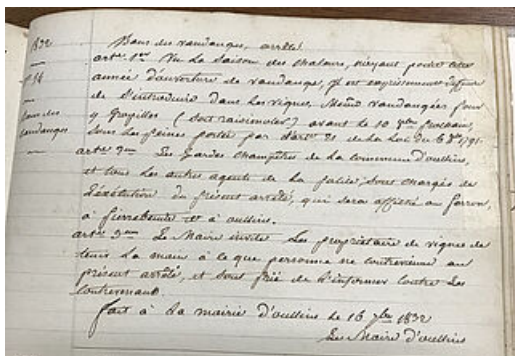 1832
Bans des vandanges, arrêté.
arte 1er Vu la Saison des chaleurs, n'ayant point cette
année d'ouverture de vandange, il est expressement défendu
de S'introduire Dans les vignes, Même vandangées pour
y Grapiller (Soit raisimoler) avant le 10 8bre prochain,
Sous les peines portée par l'arte 21 de la Loi du 6 8bre 1791.
arte 2me Les Gardes champêtres de la Commune d'oullins,
et tous les autres agents de la police, Sont chargés de
L'éxécution du présent arrêté, qui Sera affiché au perron,
à pierrebenite et à oullins.
arte 3me Le Maire invite Les propriétaire de vignes de
tenir la main à ce que personne ne contrevienne au
présent arrêté, et Sont prié de S'informer contre Les
Contrevenants.
fait à La mairie d'oullins le 16 7bre 1832
Le Maire d'oullins
Bans des
vandanges